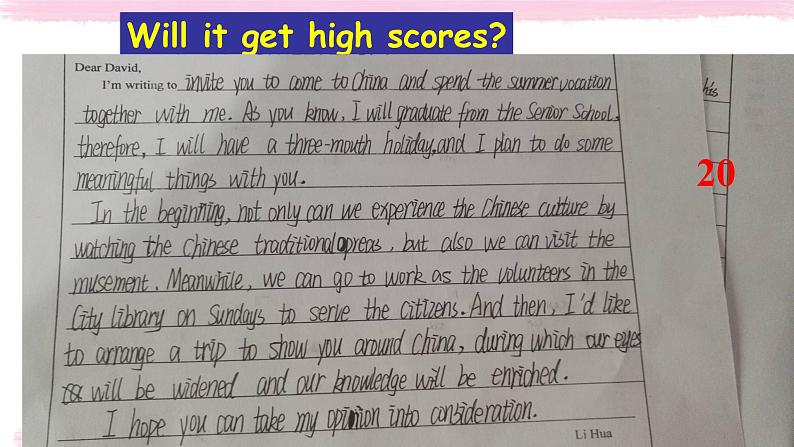 Will it get high scores?
Dear David,
I'm writing to invite you to come to China and spend the summer vocation
together with me. As you know, I will graduate from the Senior School,
therefore, I will have a three-mouth holiday, and I plan to do some
meaningful things with you.
In the beginning, not only can we experience the Chinese culture by
watching the Chinese traditional opreas, but also we can visit the
musement. Meanwhile, we can go to work as the volunteers in the
City library on Sundays to serve the citizens. And then, I'd like
to arrange a trip to show you around China, during which our eyes
will be widened and our knowledge will be enriched.
I hope you can take my opinion into consideration.
Li Hua
his
20